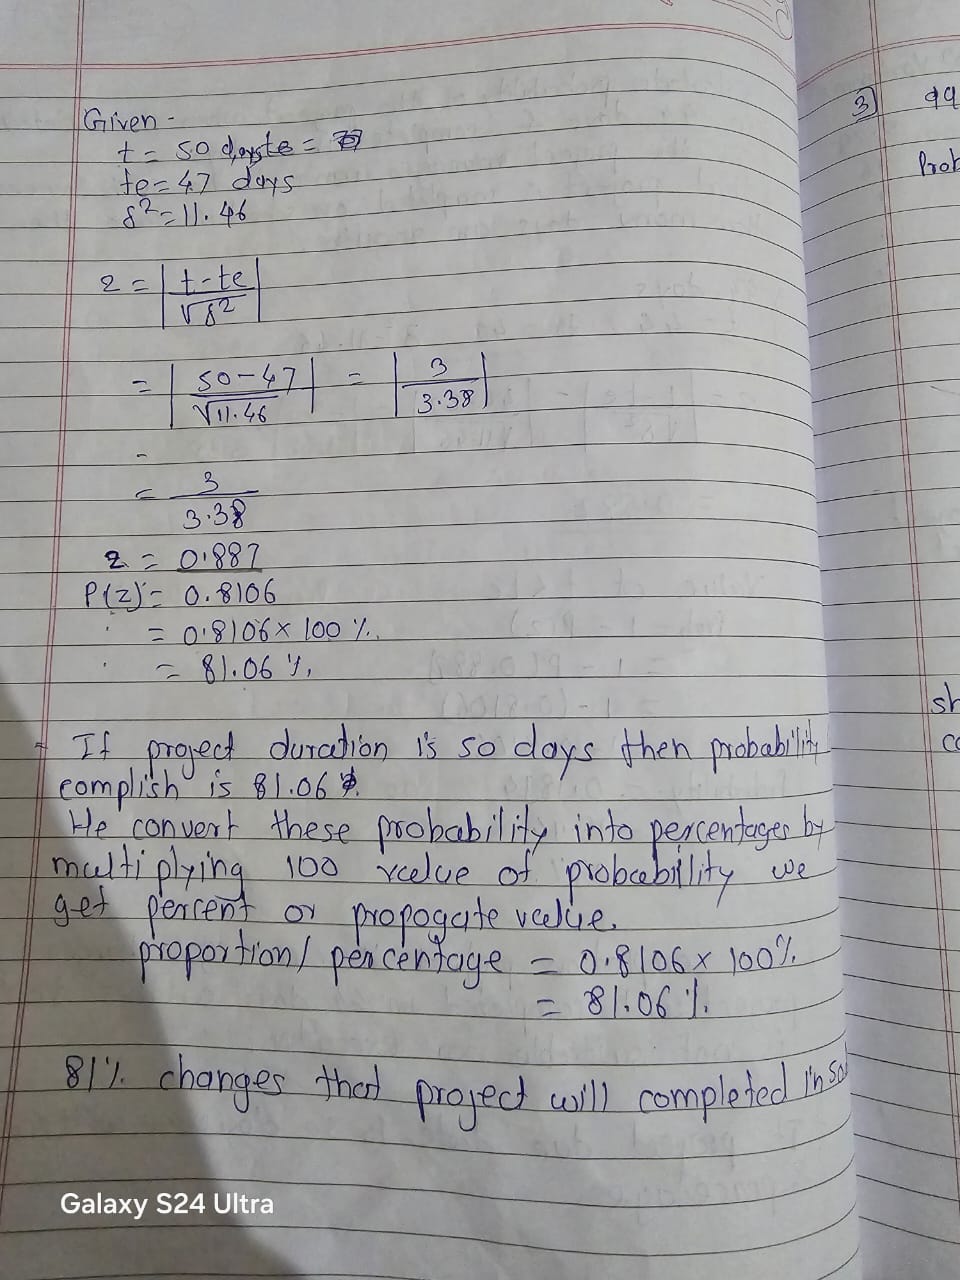 Given -
t = 50 days te =
te = 47 days
δ² = 11.46
z = | t - te / √δ² |
= | 50 - 47 / √11.46 | = | 3 / 3.38 |
-
= 3 / 3.38
z = 0.887
P(z) = 0.8106
= 0.8106 x 100 %.
= 81.06 %.
- If project duration is 50 days then probability
complish is 81.06 %.
He convert these probability into percentages by
multiplying 100 value of probability we
get percent or propogate value.
proportion / percentage = 0.8106 x 100%.
= 81.06 %.
81% changes that project will completed in 50
3) 99
Prob
sh
co
Galaxy S24 Ultra